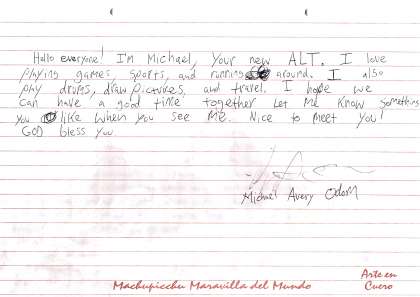 Hello everyone! I'm Michael, Your new ALT. I love
playing games, sports, and running around. I also
play drums, draw pictures, and travel. I hope we
can have a good time together Let Me know something
you like when you see Me. Nice to meet you!
GOD bless you
Michael Avery Odom
Machupicchu Maravilla del Mundo
Arte en
Cuero